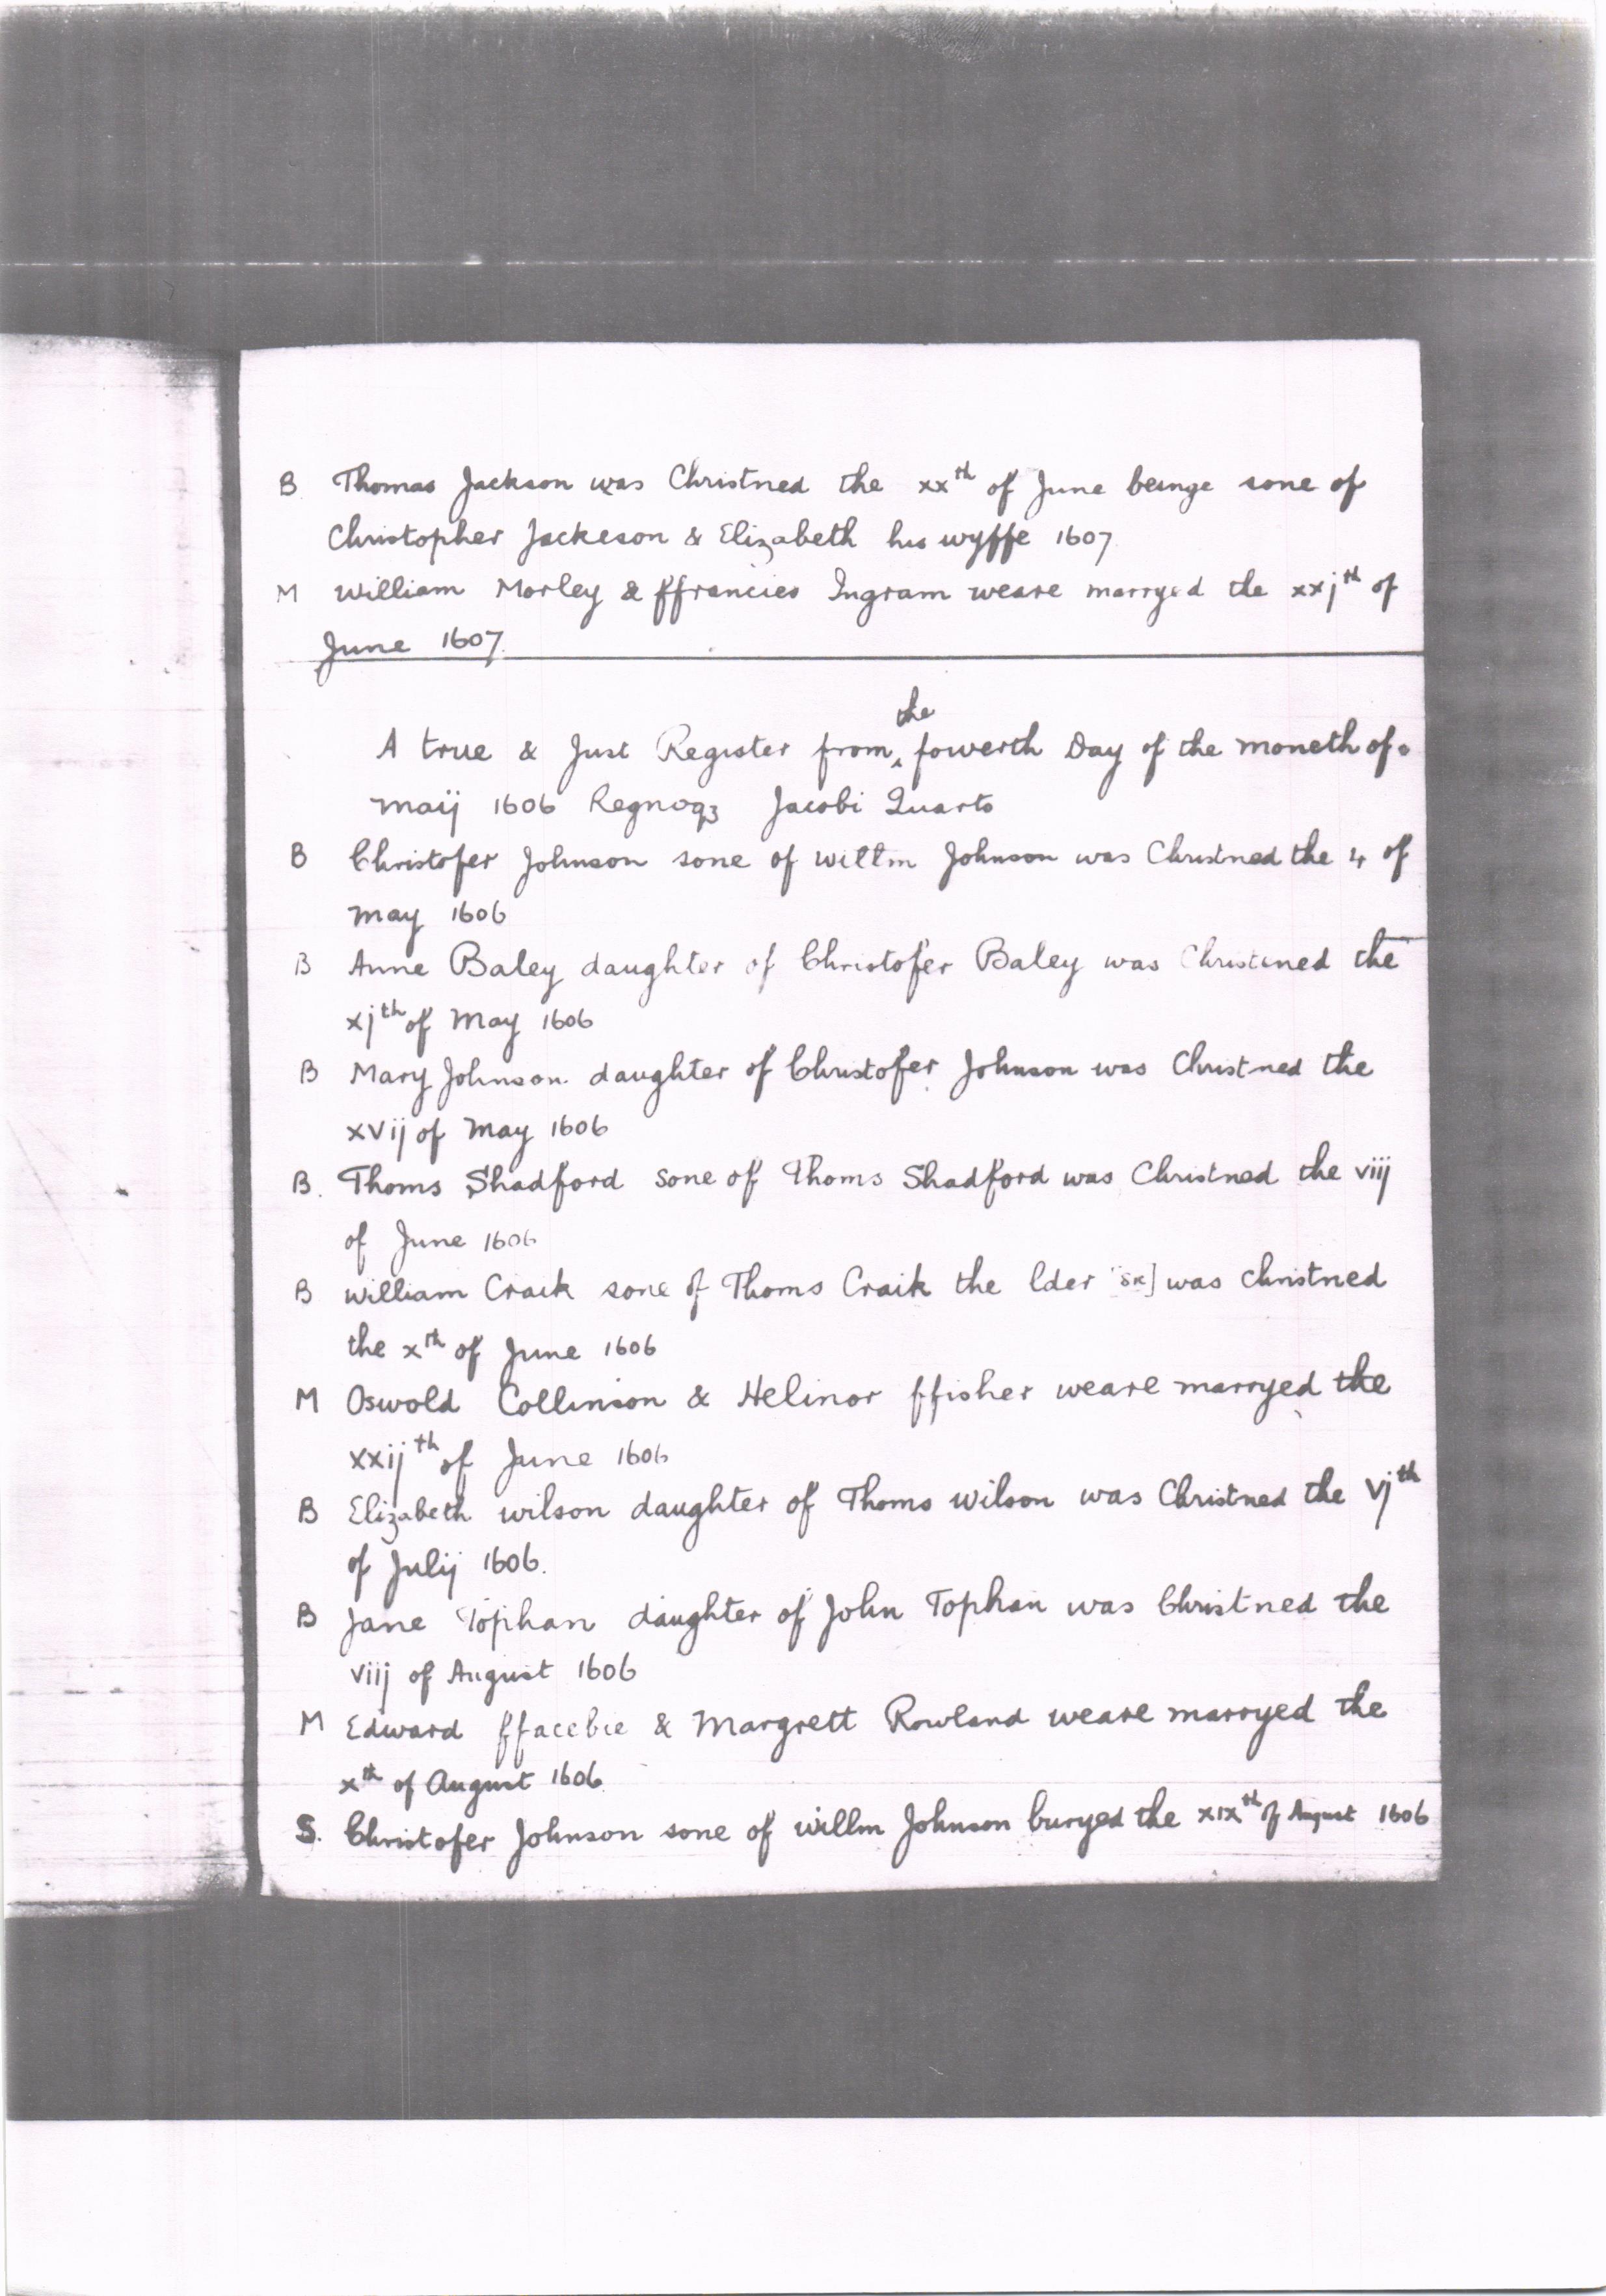 B Thomas Jackson was Christned the xxth of June beinge sone of
Christopher Jackeson & Elizabeth his wyffe 1607
M William Morley & ffrancies Ingram weare marryed the xxjth of
June 1607
the
A true & Just Register from ‸ fowerth Day of the moneth of
maij 1606 Regnoqz Jacobi Quarto
B Christofer Johnson sone of willm Johnson was Christned the 4 of
may 1606
B Anne Baley daughter of Christofer Baley was Christened the
xjth of May 1606
B Mary Johnson daughter of Christofer Johnson was Christned the
xvij of may 1606
B. Thoms Shadford sone of Thoms Shadford was Christned the viij
of June 1606
B william Craik sone of Thoms Craik the lder [sic] was christned
the xth of June 1606
M Oswold Collinson & Helinor ffisher weare marryed the
xxijth of June 1606
B Elizabeth wilson daughter of Thoms wilson was Christned the vjth
of Julij 1606.
B Jane Tophan daughter of John Tophan was Christned the
viij of August 1606
M Edward ffacebie & Margrett Rowland weare marryed the
xth of August 1606
S. Christofer Johnson sone of willm Johnson buryed the xixth of August 1606